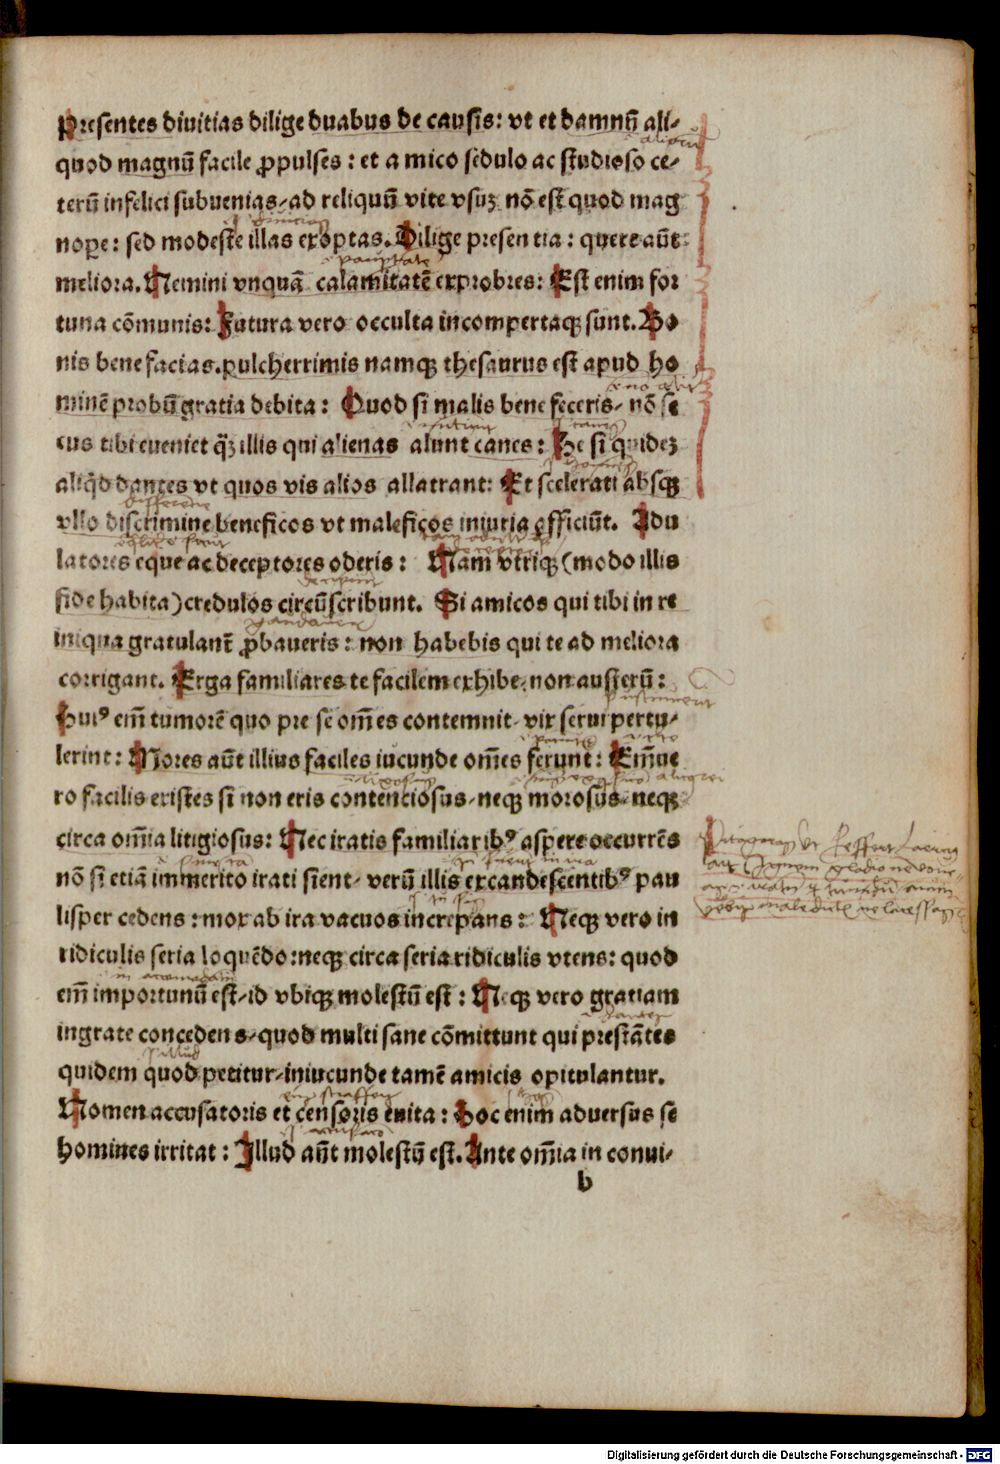 Presentes diuitias dilige duabus de causis: vt et damnū ali-
quod magnū facile ꝓpulses: et a mico sedulo ac studioso ce-
terū infelici subuenias, ad reliquū vite vsuꝫ nō est quod mag
nope: sed modeste illas exoptas. Dilige presentia: quere aūt
meliora. Nemini vnquā calamitatē exprobres: Est enim for
tuna cōmunis: Futura vero occulta incompertaqꝫ sunt. Bo
nis bene facias. pulcherrimis namqꝫ thesaurus est apud ho
minē probū gratia debita: Quod si malis bene feceris, nō se
cus tibi eueniet qꝫ illis qui alienas alunt canes: He si quidez
aliq̄d dantes vt quos vis alios allatrant: Et scelerati absqꝫ
vllo discrimine beneficos vt maleficos iniuria ꝑfficiūt. Adu
latores eque ac deceptores oderis: Nam vtriqꝫ (modo illis
fide habita) credulos circūscribunt. Si amicos qui tibi in re
iniqua gratulant̄ ꝓbaueris: non habebis qui te ad meliora
corrigant. Erga familiares te facilem exhibe, non austerū:
Huiꝰ em̄ tumorē quo pre se om̄es contemnit, vix serui pertu-
lerint: Mores aūt illius faciles iucunde om̄es ferunt: Em̄ue
ro facilis existes si non eris contenciosus, neqꝫ morosus, neqꝫ
circa om̄ia litigiosus: Nec iratis familiaribꝰ aspere occurrēs
nō si etiā immerito irati sient, verū illis excandescentibꝰ pau
lisper cedens: mox ab ira vacuos increpans: Neqꝫ vero in
ridiculis seria loquēdo: neqꝫ circa seria ridiculis vtens: quod
em̄ importunū est, id vbiqꝫ molestū est: Neqꝫ vero gratiam
ingrate concedens, quod multi sane cōmittunt qui prestātes
quidem quod petitur, iniucunde tamē amicis opitulantur.
Nomen accusatoris et censoris euita: Hoc enim aduersus se
homines irritat: Illud aūt molestū est. Ante om̄ia in conui-
b
Digitalisierung gefördert durch die Deutsche Forschungsgemeinschaft - DFG